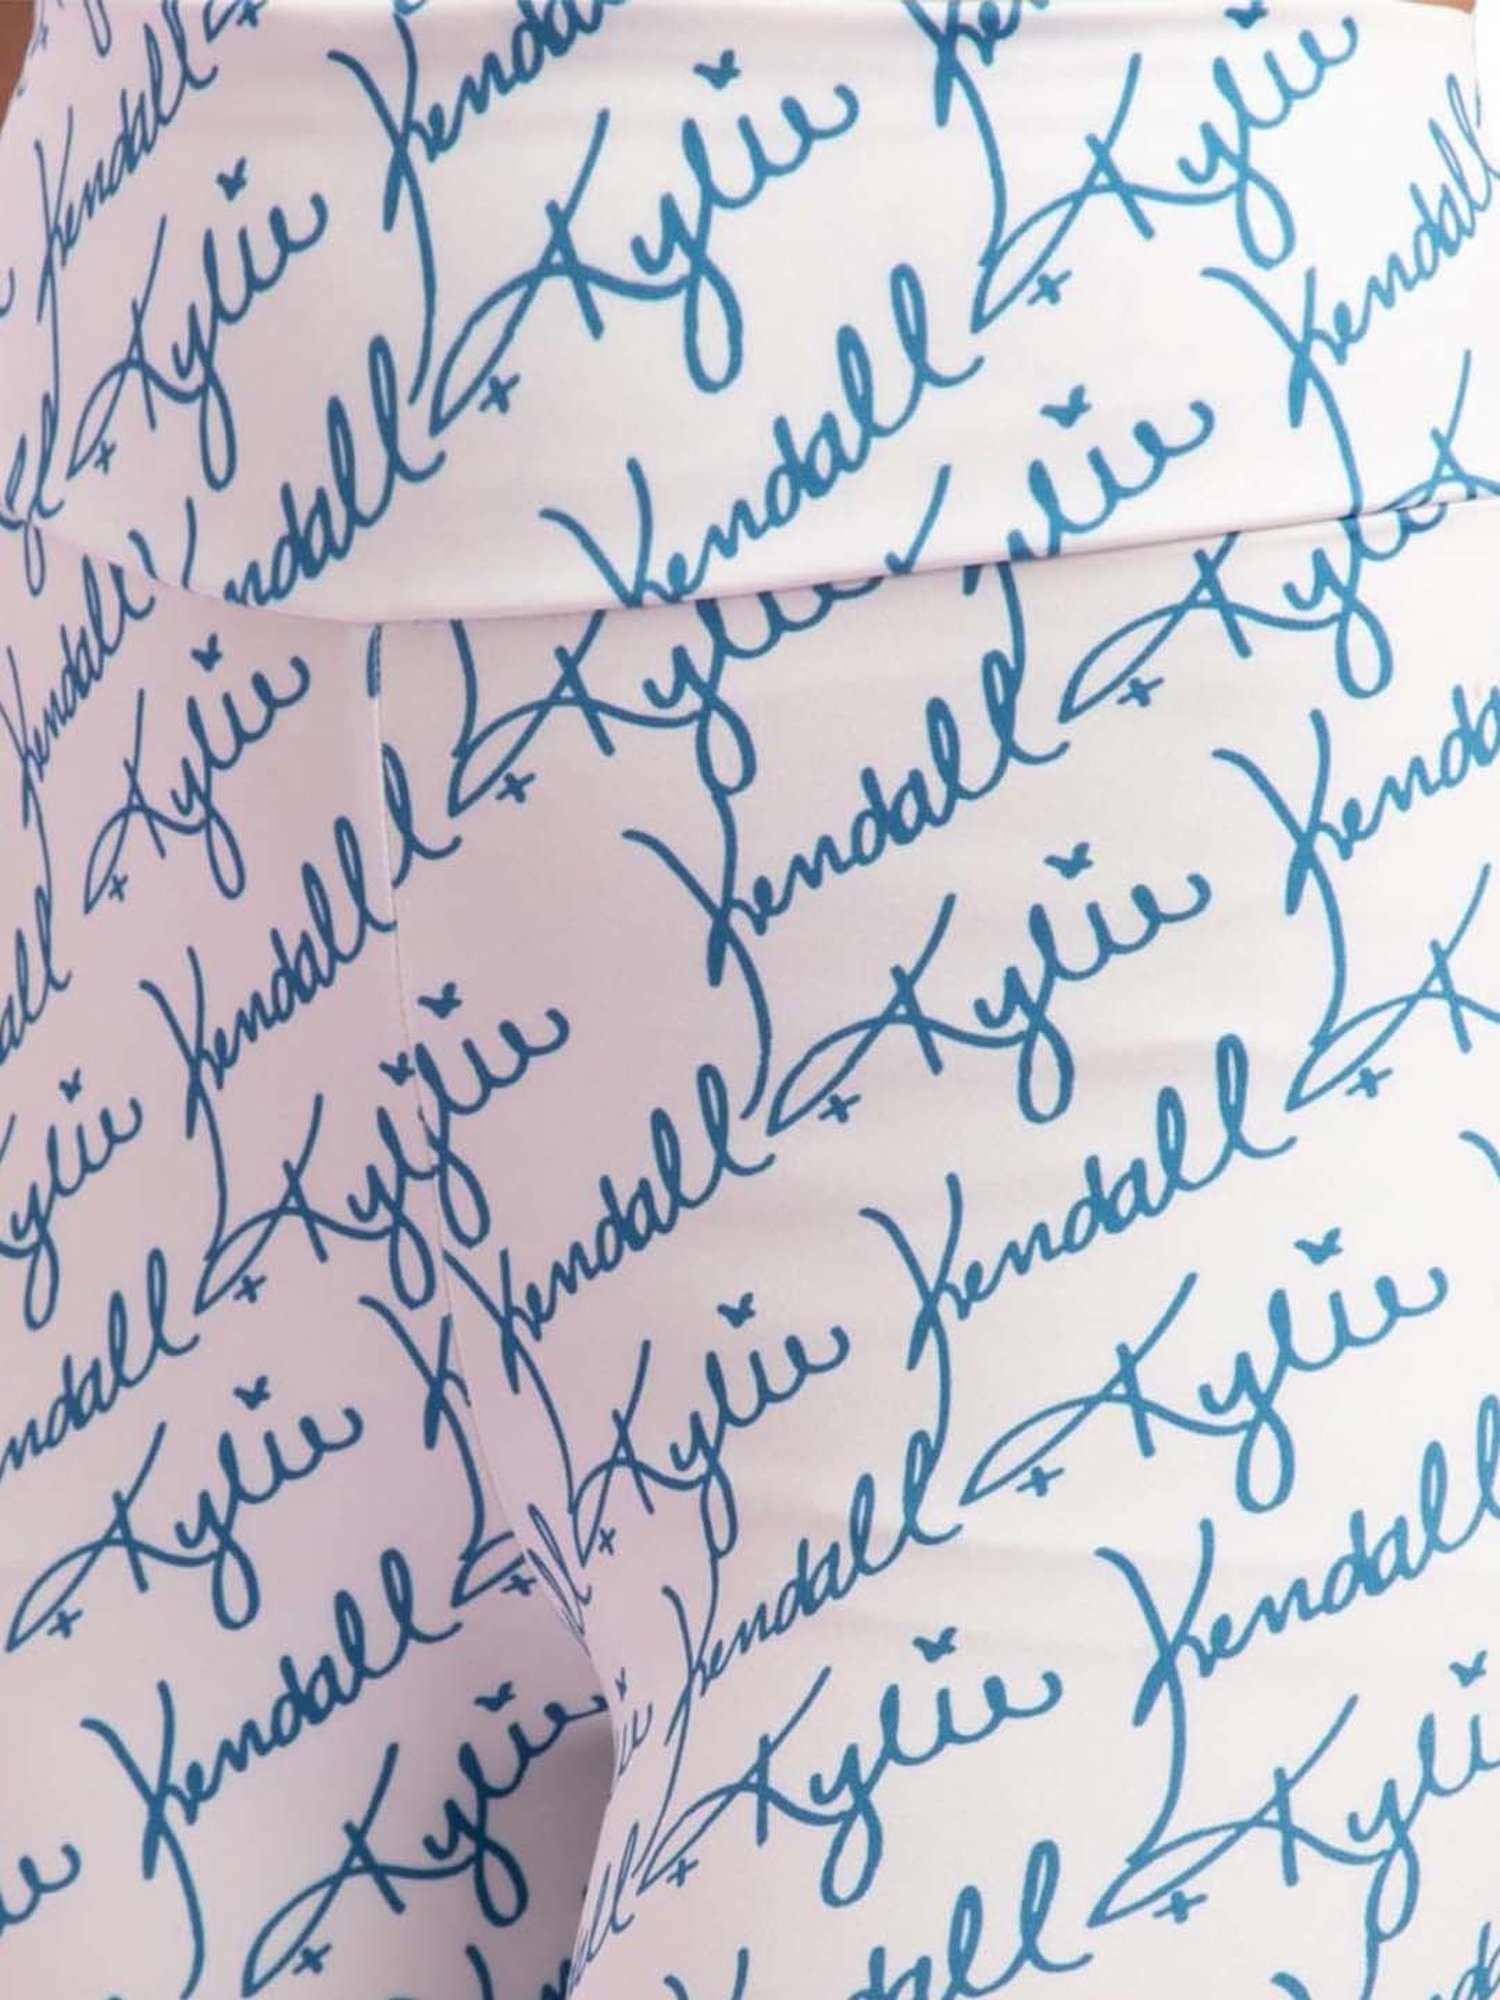 Kendall
Kendall
Kylie
Kylie
Kendall
Kylie
Kendall
Kendall
Kendall
Kylie
Kendall
Kylie
Kylie
Kendall
Kylie
Kendall
Kendall
Kylie
Kendall
Kylie
Kylie
Kylie
Kendall
Kendall
Kylie
Kylie
Kylie
Kendall
Kendall
Kendall
Kylie
Kendall
Kylie
Kylie
Kylie
Kendall